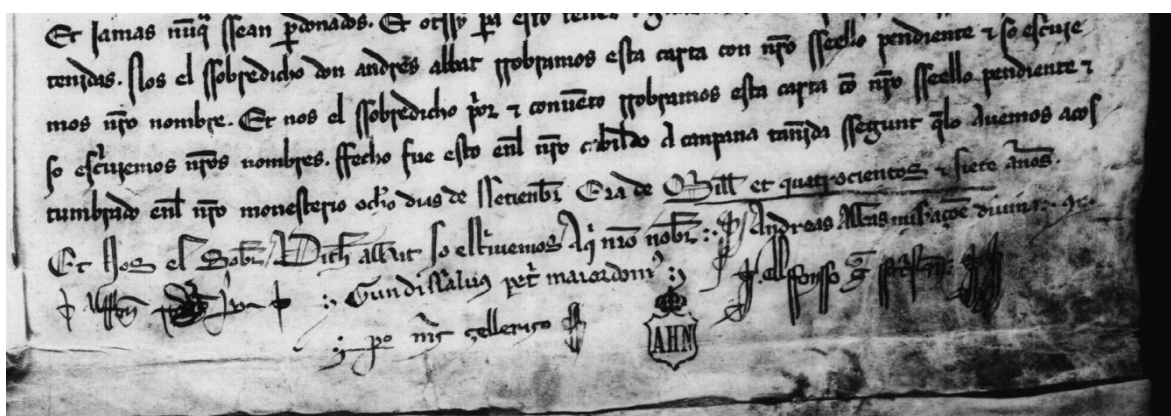 Et jamas nũq̃ ssean p̃donados. Et otssy pa esto
tenidas. Nos el ssobredicho don andres abbat rrobramos esta carta con nr̃o sseello pendiente τ so escriue
mos nr̃o nombre. Et nos el ssobredicho p̃or τ conuẽto rrobramos esta carta cõ nr̃o sseello pendiente τ
so esc̃uiemos nr̃os nombres. ffecho fue esto enl nr̃o cabildo a campana tañida ssegunt q̃lo auemos acos
tumbrado enl nr̃o monesterio ocho dias de Setienbr̃ Era de Mill et quatrocientos τ siete años.
Et Nos el Sobr̃ Dich abbat so esc̃ivemos Aq̃ nr̃o nobr̃ Andreas Abbas mis̃açõe divina
Alffon p̃or Gundissalius pet̃ maiordom⁹ Alffonsso
p⁰ mr̃ çellerizo
AHN